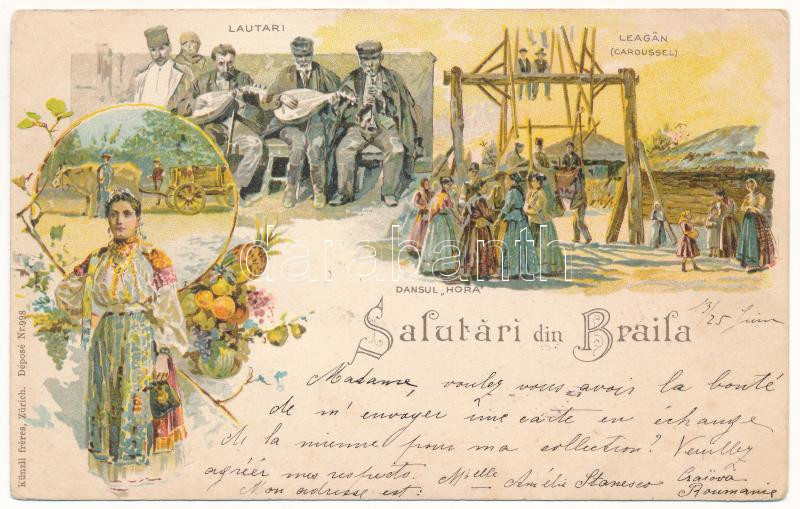 LAUTARI
LEAGĂN
(CAROUSSEL)
darabanth
DANSUL „HORA"
Salutări din Braila
13/25 Juin
Madame, voulez vous avois la bonté
de m'envoyer ûne carte en échange
de la mienne pour ma collection? Veuillez
agréer mes respects. Mlle Amélie Stanesco
Craiova
Roumanie
Mon adresse est:
Künzli frères, Zürich. Déposé Nr. 998